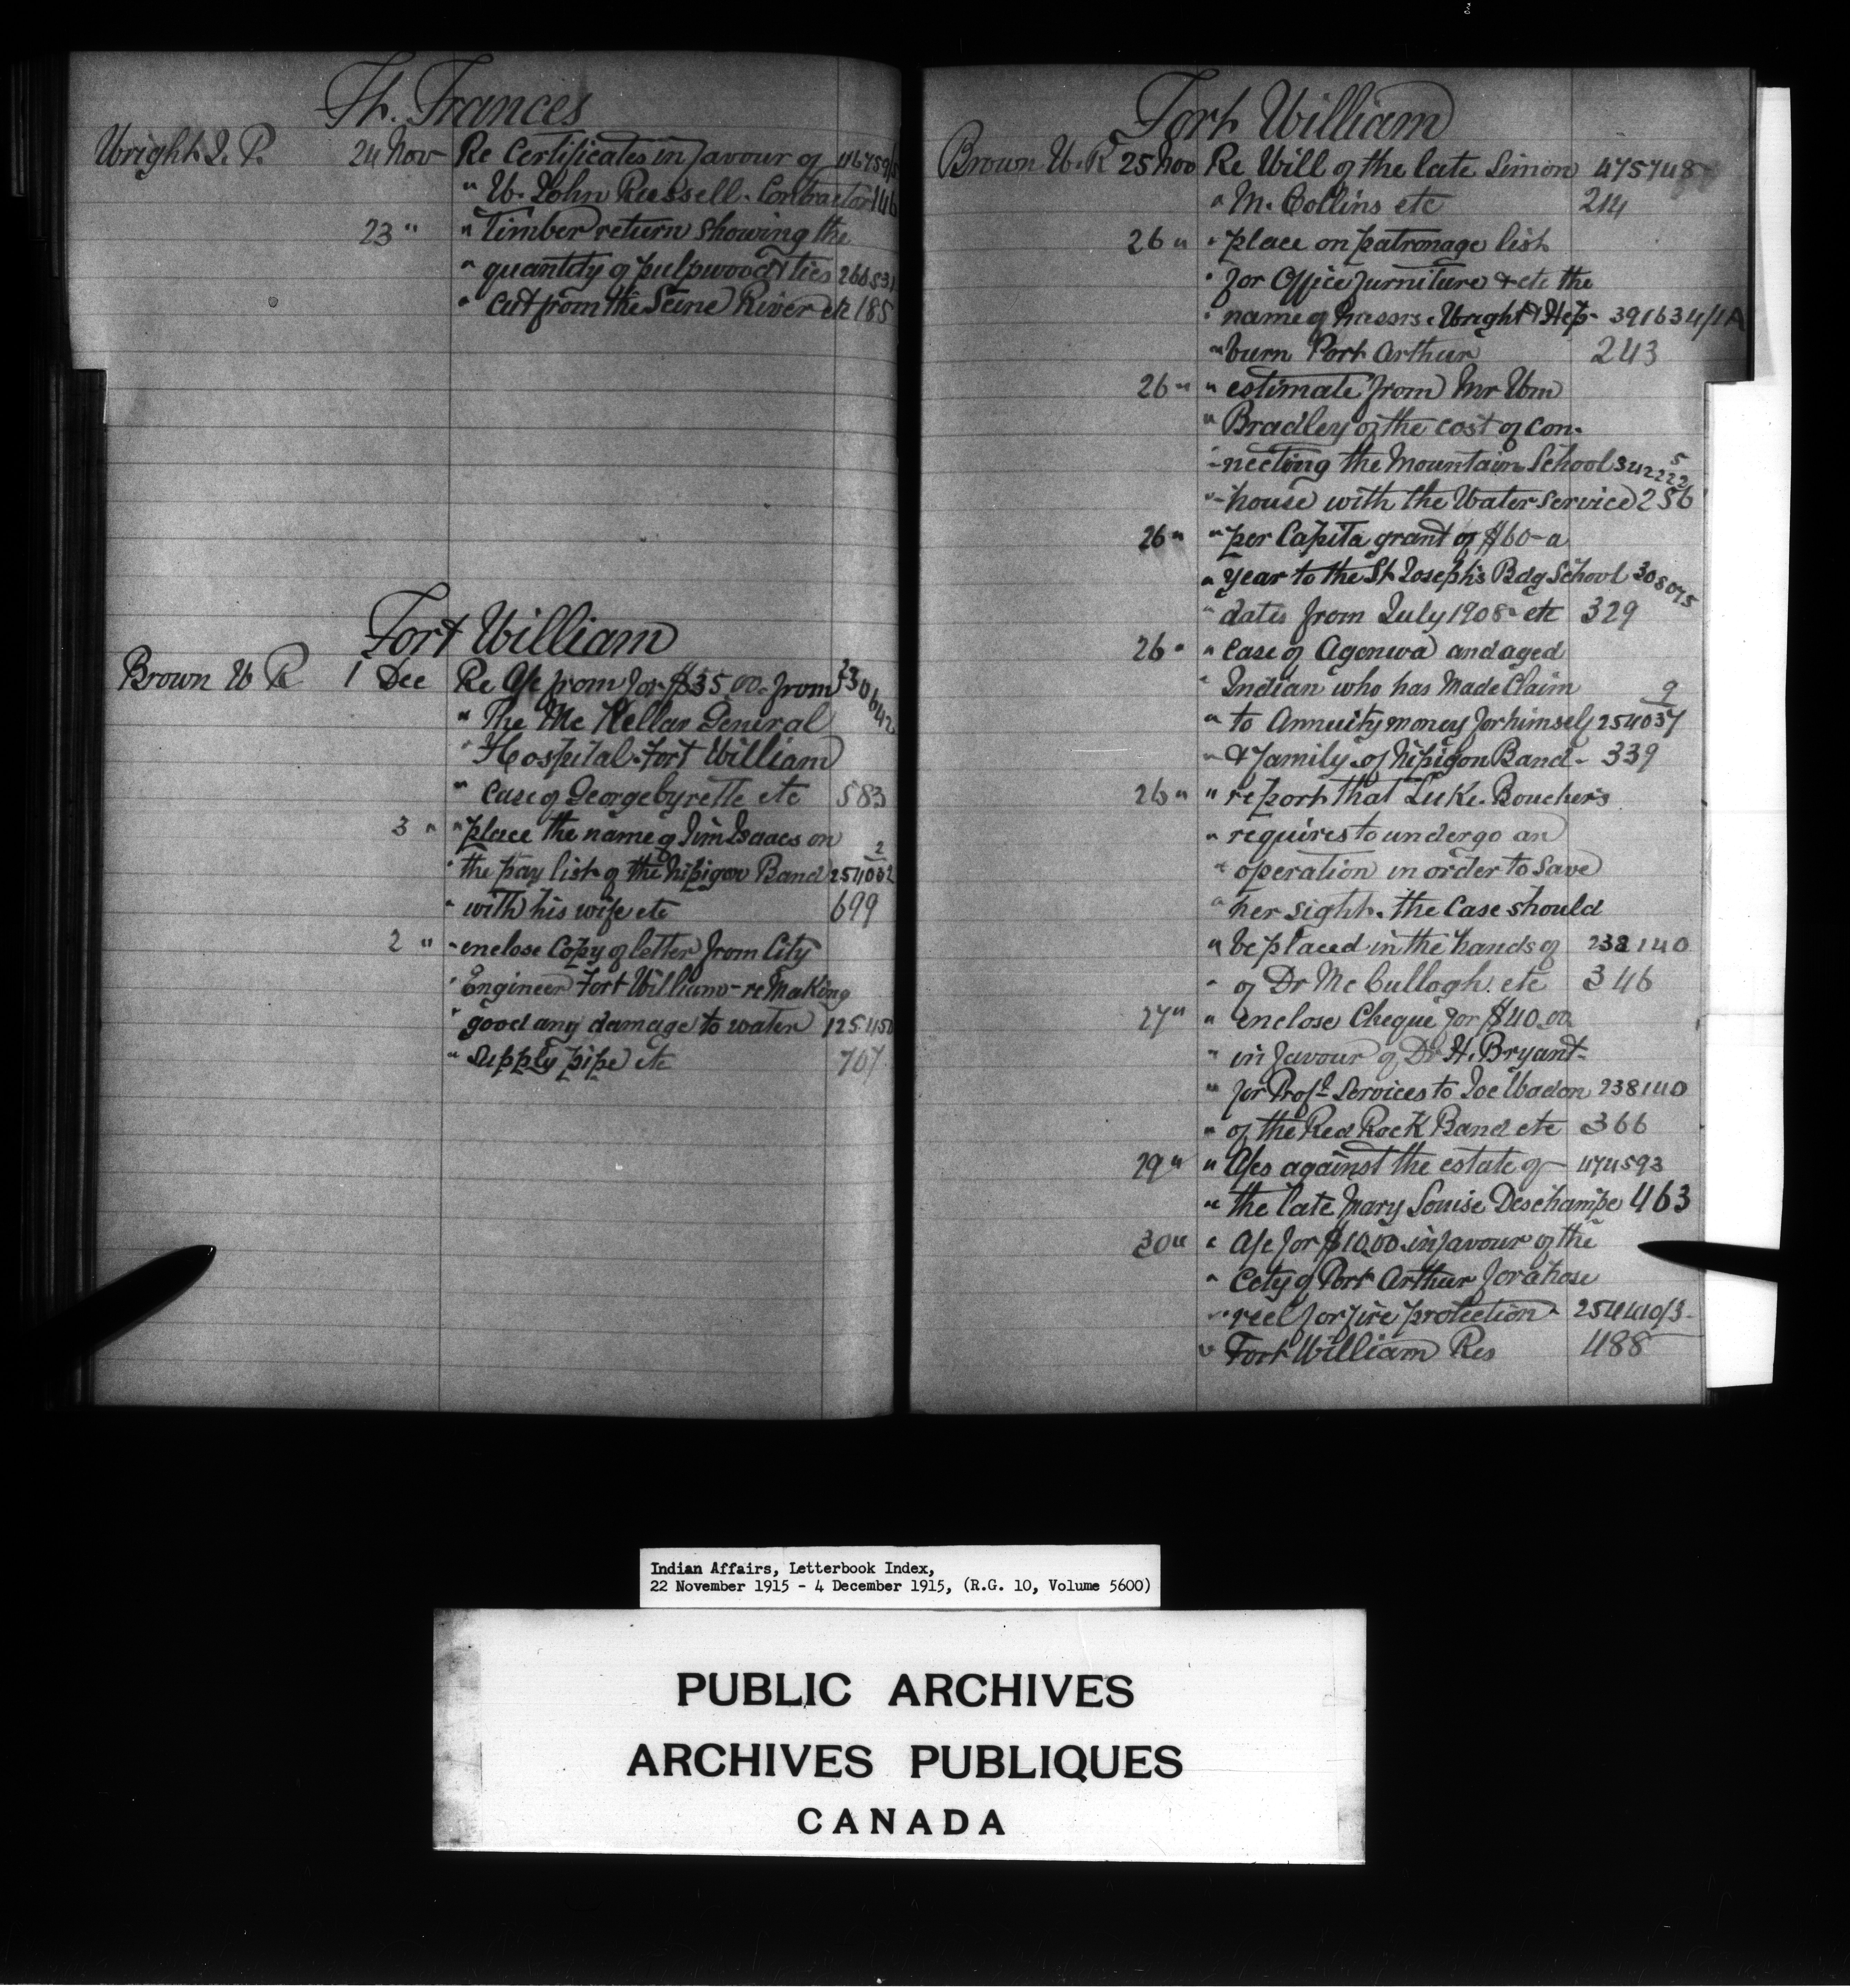 Ft. Frances
Wright J. P. 24 Nov Re Certificates in favour of 416759/5
" W. John Russell. Contractor 146
23 " " Timber return showing the
" quantity of pulpwood & ties 266531
" cut from the Seine River etc 185
Fort William
Brown W R 1 Dec Re A/c from for $35.00 from 330642
" The Mc Kellar General
" Hospital Fort William
" case of George byrette etc 583
3 " " place the name of Jim Isaacs on 2
" the pay list of the Nipigon Band 254032
" with his wife etc 699
2 " " enclose Copy of letter from City
" Engineer Fort William - re Making
" good any damage to water 125450
" supply pipe etc 707
Fort William
Brown W. R 25 Nov Re Will of the late Simon 475748
" M. Collins etc 214
26 " " place on patronage list
" for Office furniture & etc the
" name of Messrs. Wright & Hep- 391634/1A
" burn Port Arthur 243
26 " " estimate from Mr Wm
" Bradley of the cost of con-
" necting the Mountain School 342222 5
" house with the Water service 256
26 " " per Capita grant of $60 - a
" year to the St Joseph's Bdg School 308075
" dates from July 1908 etc 329
26 " " case of Agonwa and aged
" Indian who has Made Claim 9
" to Annuity money for himself 254037
" & family of Nipigon Band - 339
26 " " report that Luke Bouchers
" requires to undergo an
" operation in order to save
" her sight. the case should
" be placed in the hands of 238140
" of Dr Mc Cullogh. etc 346
27 " " enclose Cheque for $40.00
" in favour of Dr H. Bryant-
" for Prof'l Services to Joe Wadon 238140
" of the Red Rock Band etc 366
29 " " A/cs against the estate of 474593
" the late Mary Louise Deschampe 463
30 " " A/c for $10.00 in favour of the
" City of Port Arthur for a hose
" reel for fire protection 254440/3
" Fort William Res 488
Indian Affairs, Letterbook Index,
22 November 1915 - 4 December 1915, (R.G. 10, Volume 5600)
PUBLIC ARCHIVES
ARCHIVES PUBLIQUES
CANADA